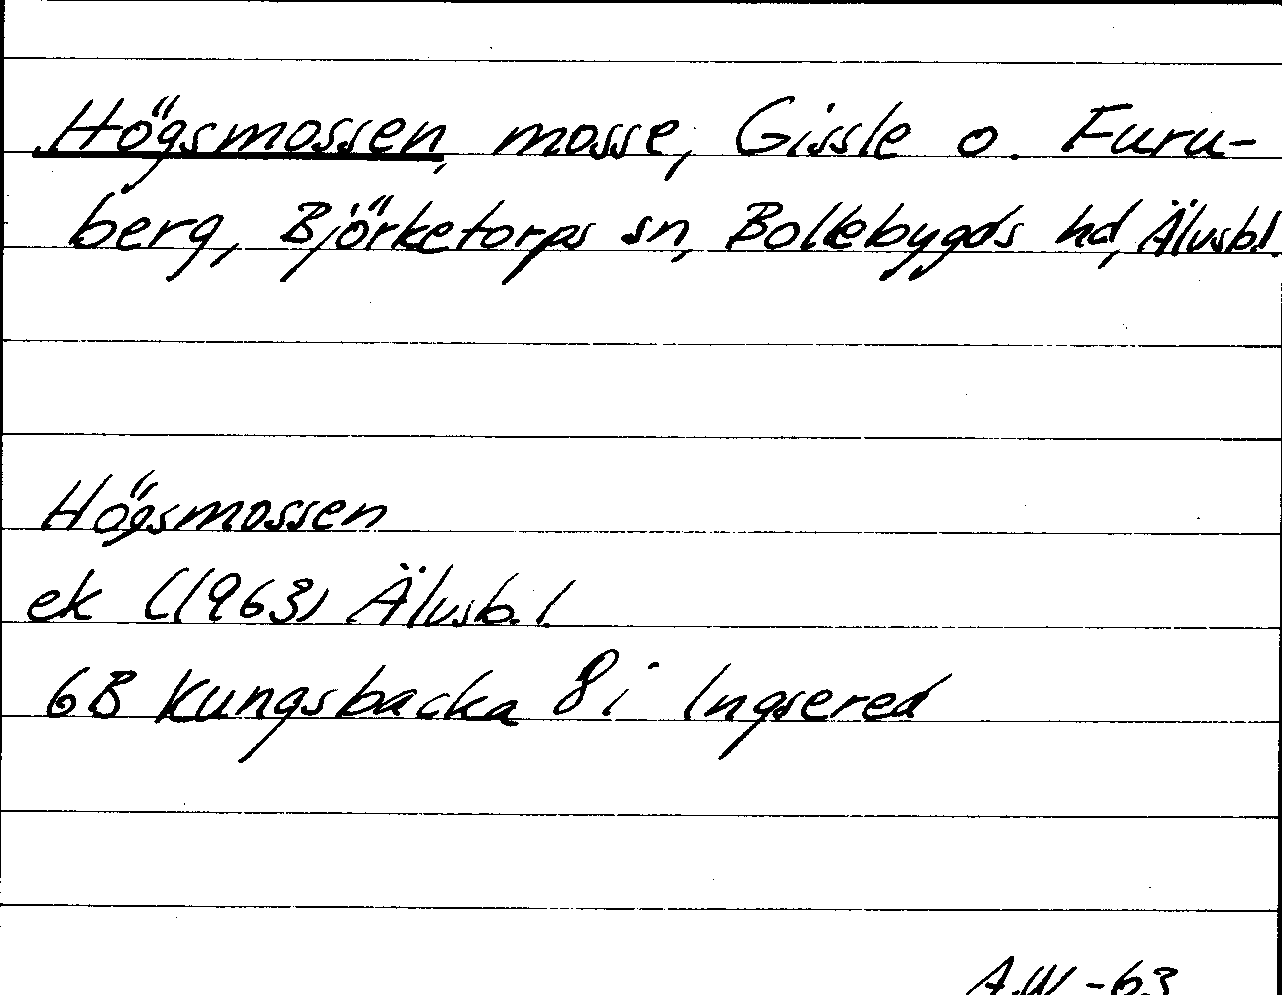 Högsmossen, mosse, Gissle o. Furu-
berg, Björketorps sn, Bollebygds hd, Älvsb.l.
Högsmossen
ek (1963) Älvsb.l.
6B Kungsbacka 8i Ingsered
A.W -63